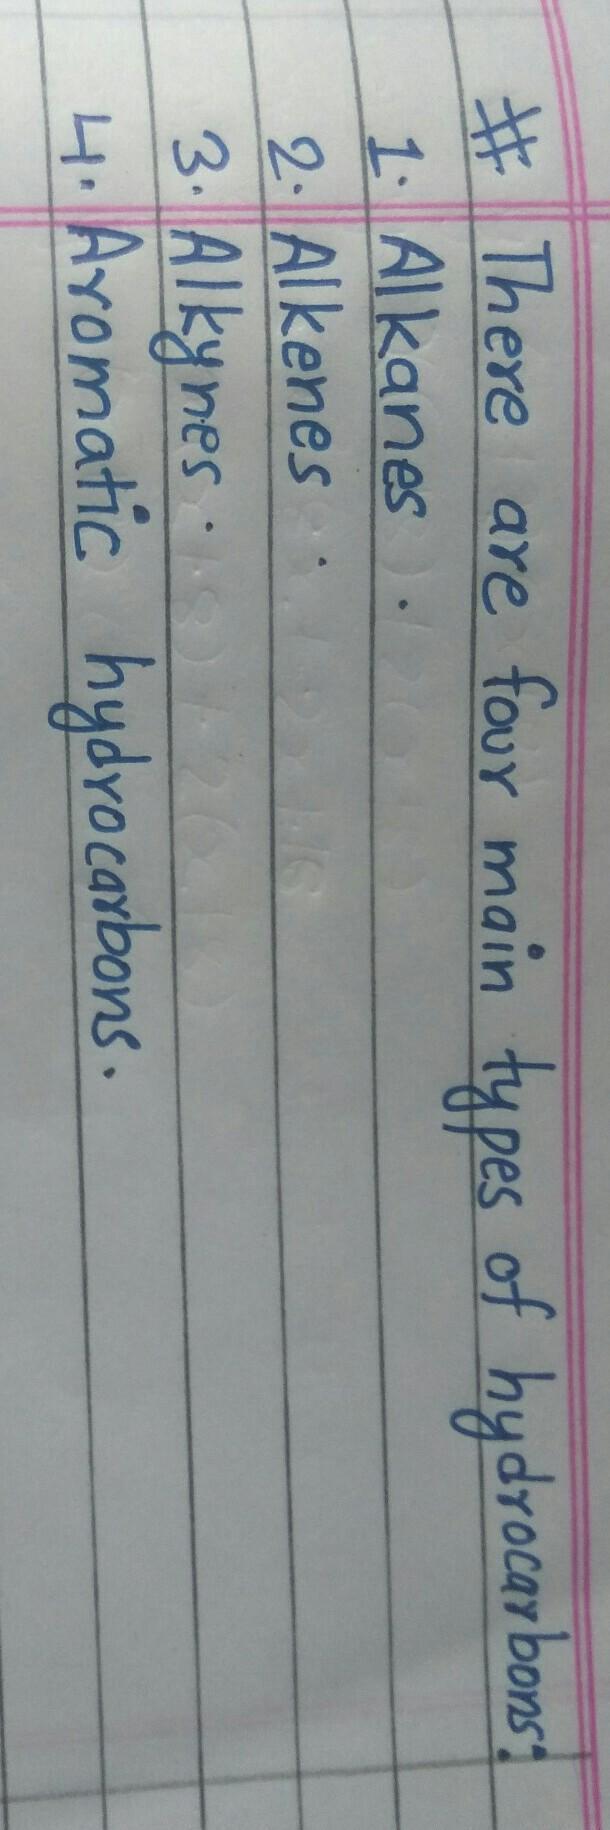 # There are four main types of hydrocarbons:
1. Alkanes.
2. Alkenes.
3. Alkynes.
4. Aromatic hydrocarbons.